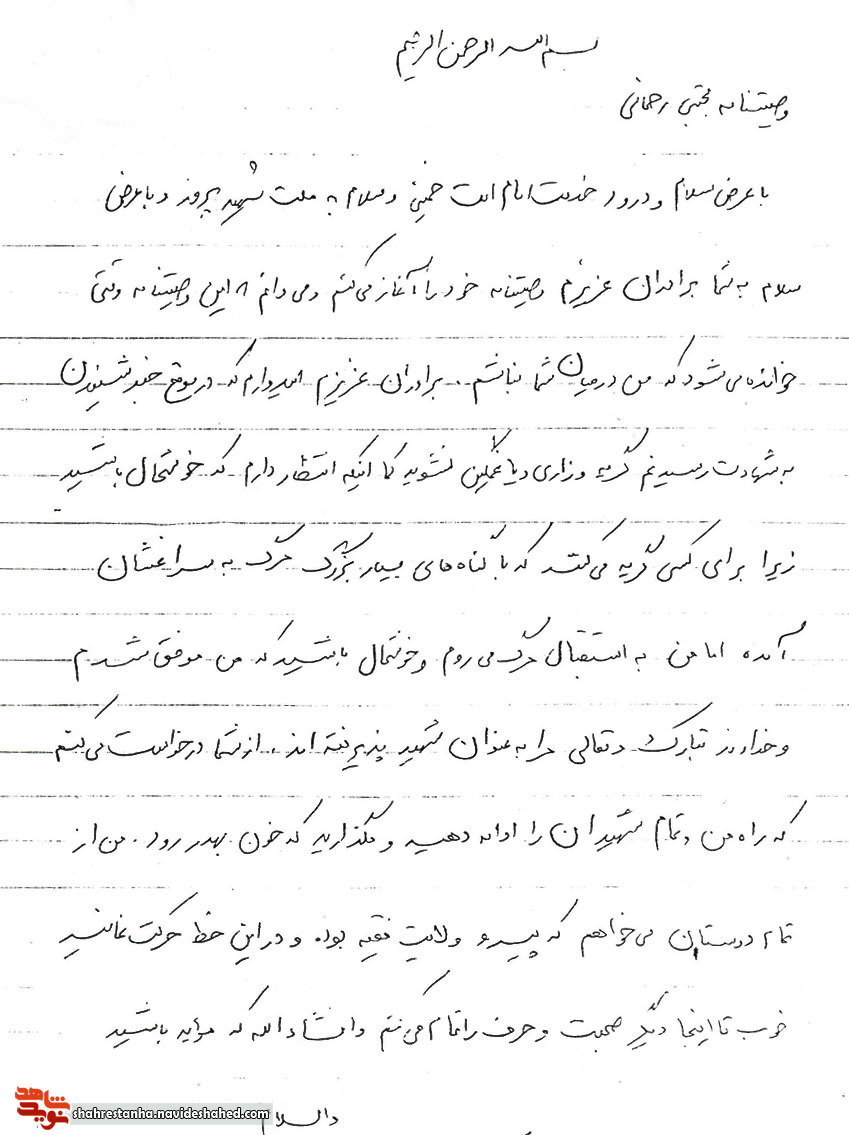 بسم الله الرحمن الرحیم
وصیتنامه مجتبی رحمانی
با عرض سلام و درود خدمت امام امت خمینی و سلام به ملت شهید پرور و با عرض
سلام به شما برادران عزیزم وصیتنامه خود را آغاز می‌کنم و می‌دانم که این وصیتنامه وقتی
خوانده می‌شود که من در میان شما نباشم. برادران عزیزم امیدوارم که در موقع خبر شنیدن
به شهادت رسیدنم گریه و زاری و یا غمگین نشوید کما اینکه انتظار دارم که خوشحال باشید
زیرا برای کسی گریه می‌کنند که با گناه‌های بسیار بزرگ مرگ به سراغشان
آمده اما من به استقبال مرگ می‌روم و خوشحال باشید که من موفق شدم
و خداوند تبارک و تعالی مرا به عنوان شهید پذیرفته‌اند. از شما درخواست می‌کنم
که راه من و تمام شهیدان را ادامه دهید و مگذارید که خون بهدر رود. من از
تمام دوستان می‌خواهم که پیرو ولایت فقیه بوده و در این خط حرکت نمائید
خوب تا اینجا دیگر صحبت و حرف را تمام می‌کنم و انشاءالله که موید باشید
والسلام
نوید شاهد
shahrestanha.navideshahed.com